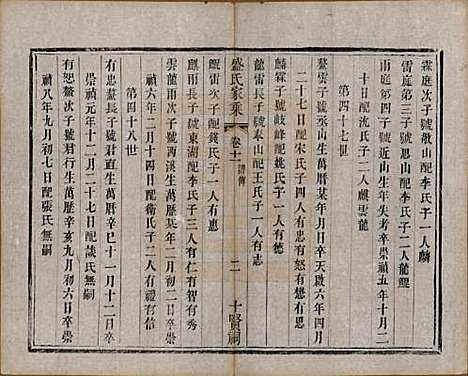 霖庭次子號敬山配李氏子一人麟
雷庭第三子號思山配李氏子二人龍鯤
雨庭第四子號近山生年失考卒崇禎五年十月二
十日配沈氏子二人麒雲龍
第四十七世
鰲雲子號 生萬曆某年月日卒天啟六年四月
二十七日配宋氏子四人有忠有恕有懋有思
麟霖子號岐峰配姚氏子一人有德
龍雷長子號泰山配王氏子一人有志
盛氏家乘 卷十一 譜傳 二 十賢祠
鯤雷次子配錢氏子一人有惠
麒雨長子號東湖配李氏子三人有仁有智有秀
雲龍雨次子號西溪生萬曆某年二月初二日卒崇
禎六年二月十四日配衛氏子二人有禮有信
第四十八世
有忠鰲長子號君直生萬曆辛巳十一月十二日卒
崇禎元年十二月二十七日配談氏無嗣
有恕鰲次子號 生萬曆辛亥九月初六日卒崇
禎八年九月初七日配張氏無嗣